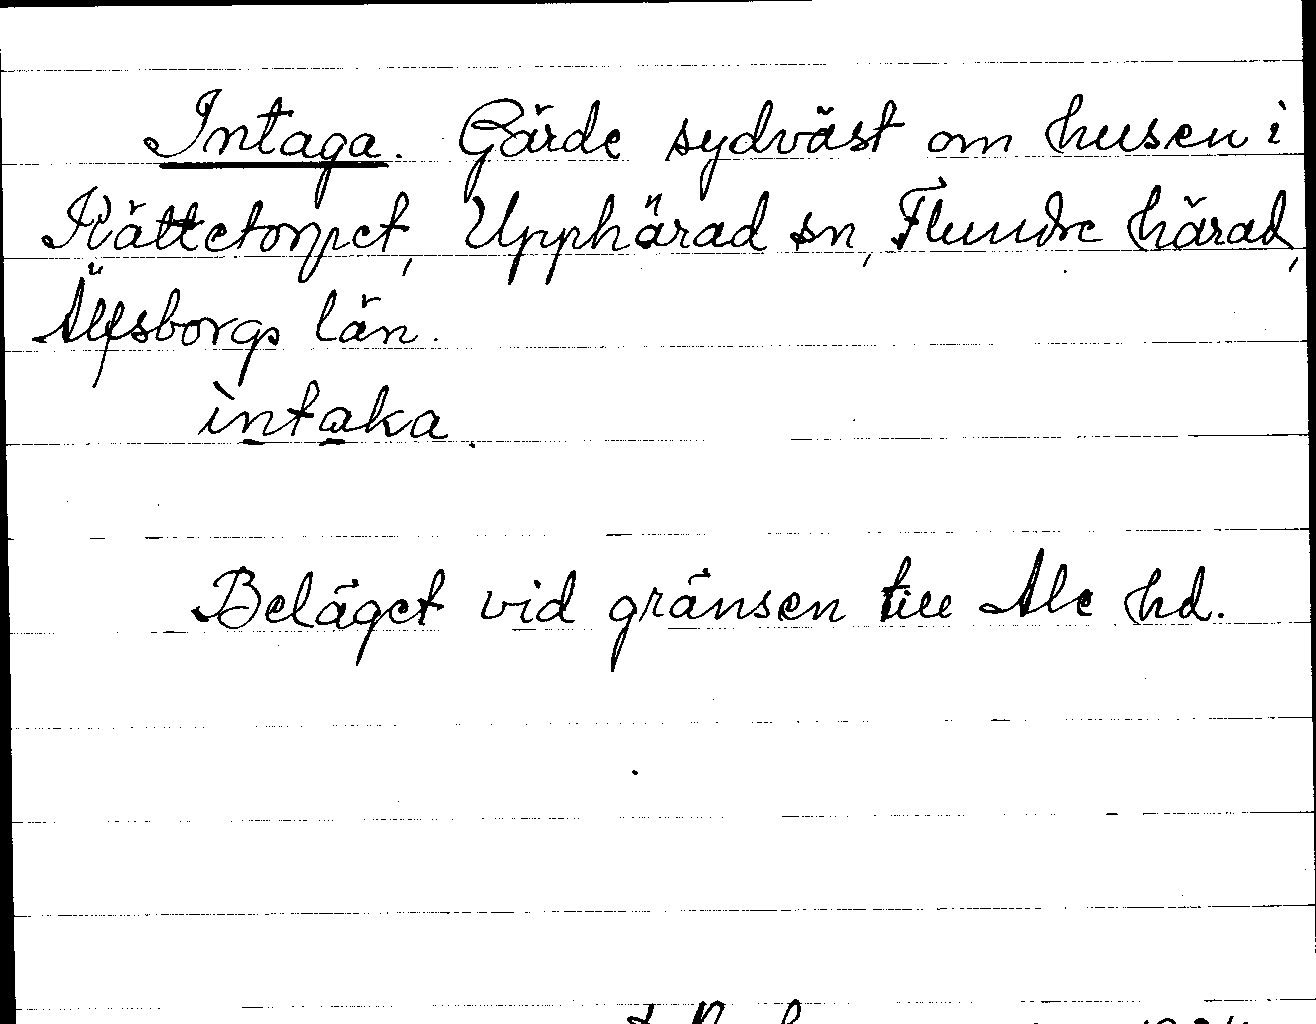 Intaga. Gärde sydväst om husen i
Rättetorpet, Upphärad sn, Flundre härad,
Älfsborgs län.
ìntaka.
Beläget vid gränsen till Ale hd.